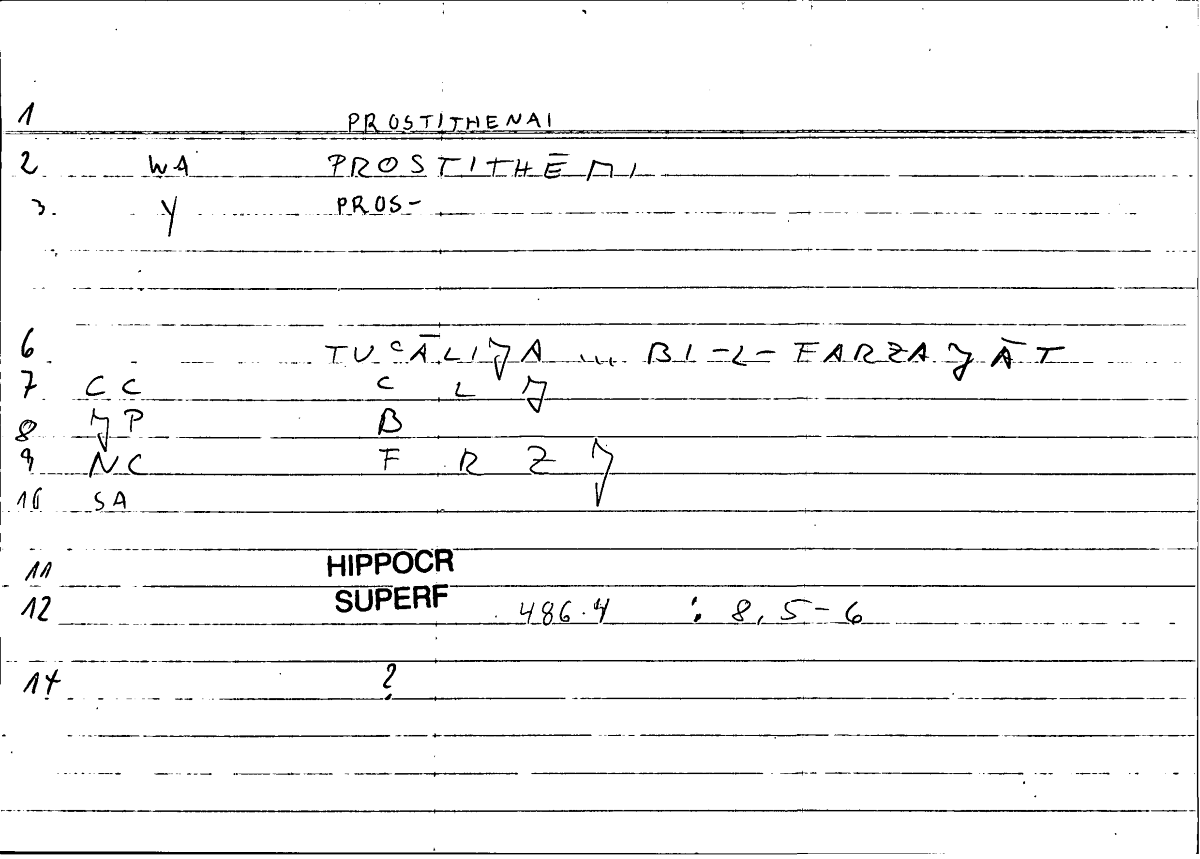 1 PROSTITHENAI
2 WA PROSTITHĒMI
3. Y PROS-
6 TUCĀLIJA ... BI-L-FARZAJĀT
7 CC C L J
8 JP B
9 NC F R Z J
10 SA
11 HIPPOCR
12 SUPERF 486.4 : 8,5-6
14 ?